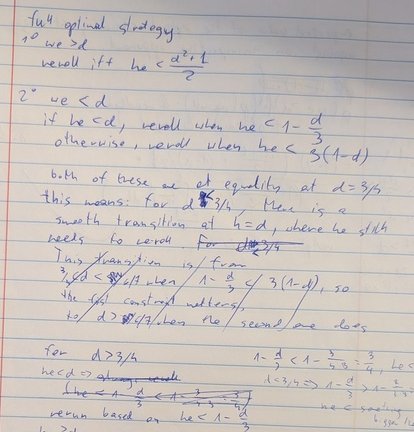 full optimal strategy:
1° we > d
reroll iff he < d²+1 / 2
2° we < d
if he < d, reroll when he < 1 - d/3
otherwise, reroll when he < 3(1-d)
both of these are at equality at d = 3/4
this means: for d 3/4, there is a
smooth transition at h=d, where he still
needs to reroll. For
This transition is from
3/4 < d < 6/7 when 1 - d/3 < 3(1-d), so
the first constraint matters,
to d > 6/7 when the second one does
for d > 3/4
he<d =>
rerun based on he < 1 - d/3
1 - d/3 < 1 - = 3/4, he <
d < 3/4 => 1 - d/3 > 1 -
he <
bigger